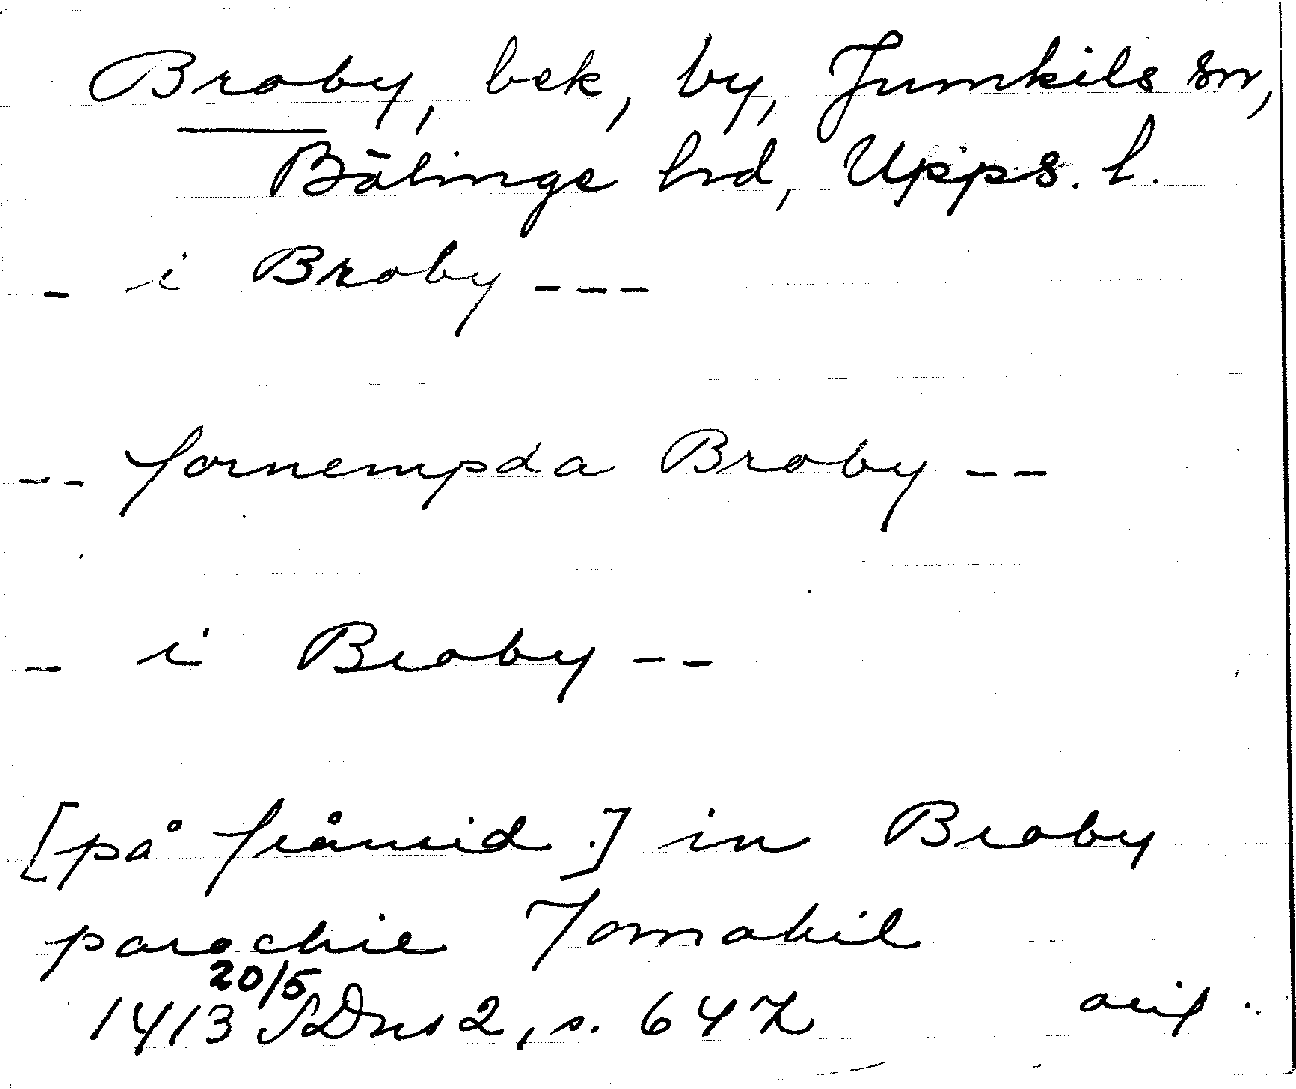 Broby, bek, by, Jumkils sn,
Bälinge hrd, Upps. l.
- i Broby ---
-- fornempda Broby --
- i Broby --
[på frånsid.] in Broby
parochie Jomakil
1413 20/5 SDns 2, s. 647 orig.